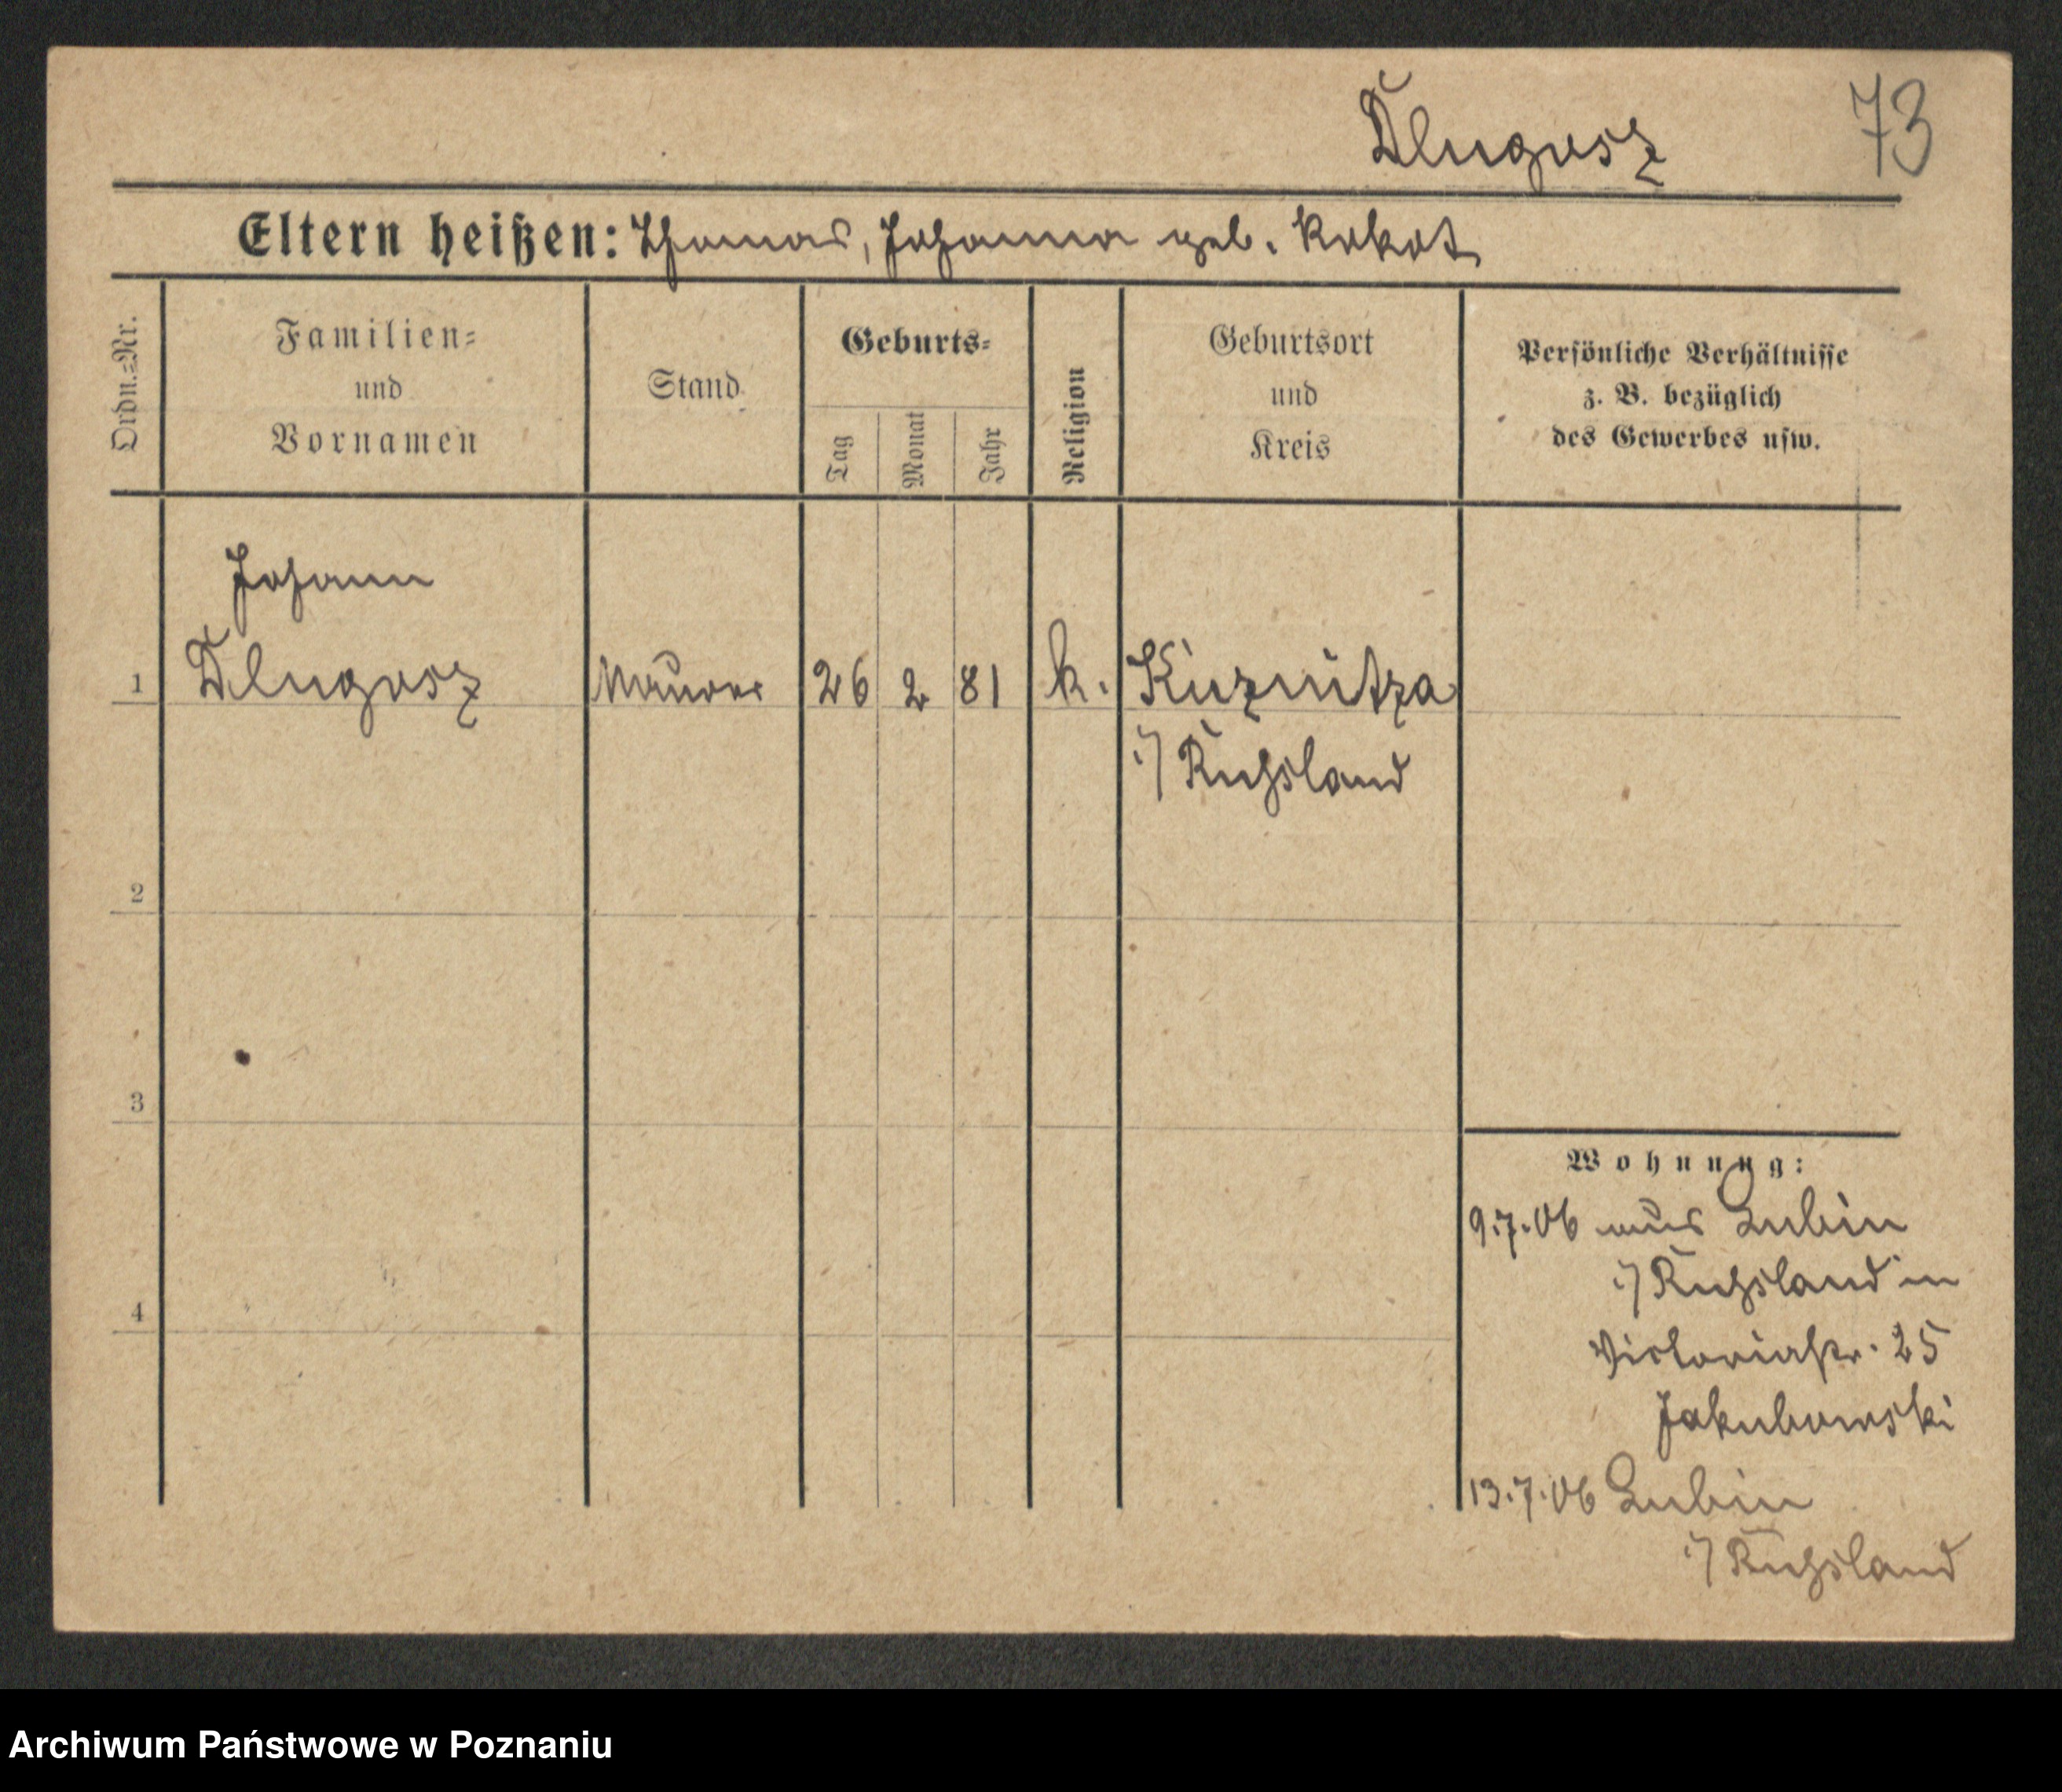 Dlugosz
73
Eltern heißen: Thomas, Johanna geb. Kokot
Ordn.=Nr.
Familien=
und
Vornamen
Stand
Geburts=
Tag
Monat
Jahr
Religion
Geburtsort
und
Kreis
Persönliche Verhältnisse
z. B. bezüglich
des Gewerbes usw.
Johann
1 Dlugosz Maurer 26 2 81 k. Kuznitza
i/ Rußland
2
3
4
Wohnung:
9.7.06 aus Lubin
i/ Rußland in
Victoriastr. 25
Jakubowski
13.7.06 Lubin
i/ Rußland
Archiwum Państwowe w Poznaniu